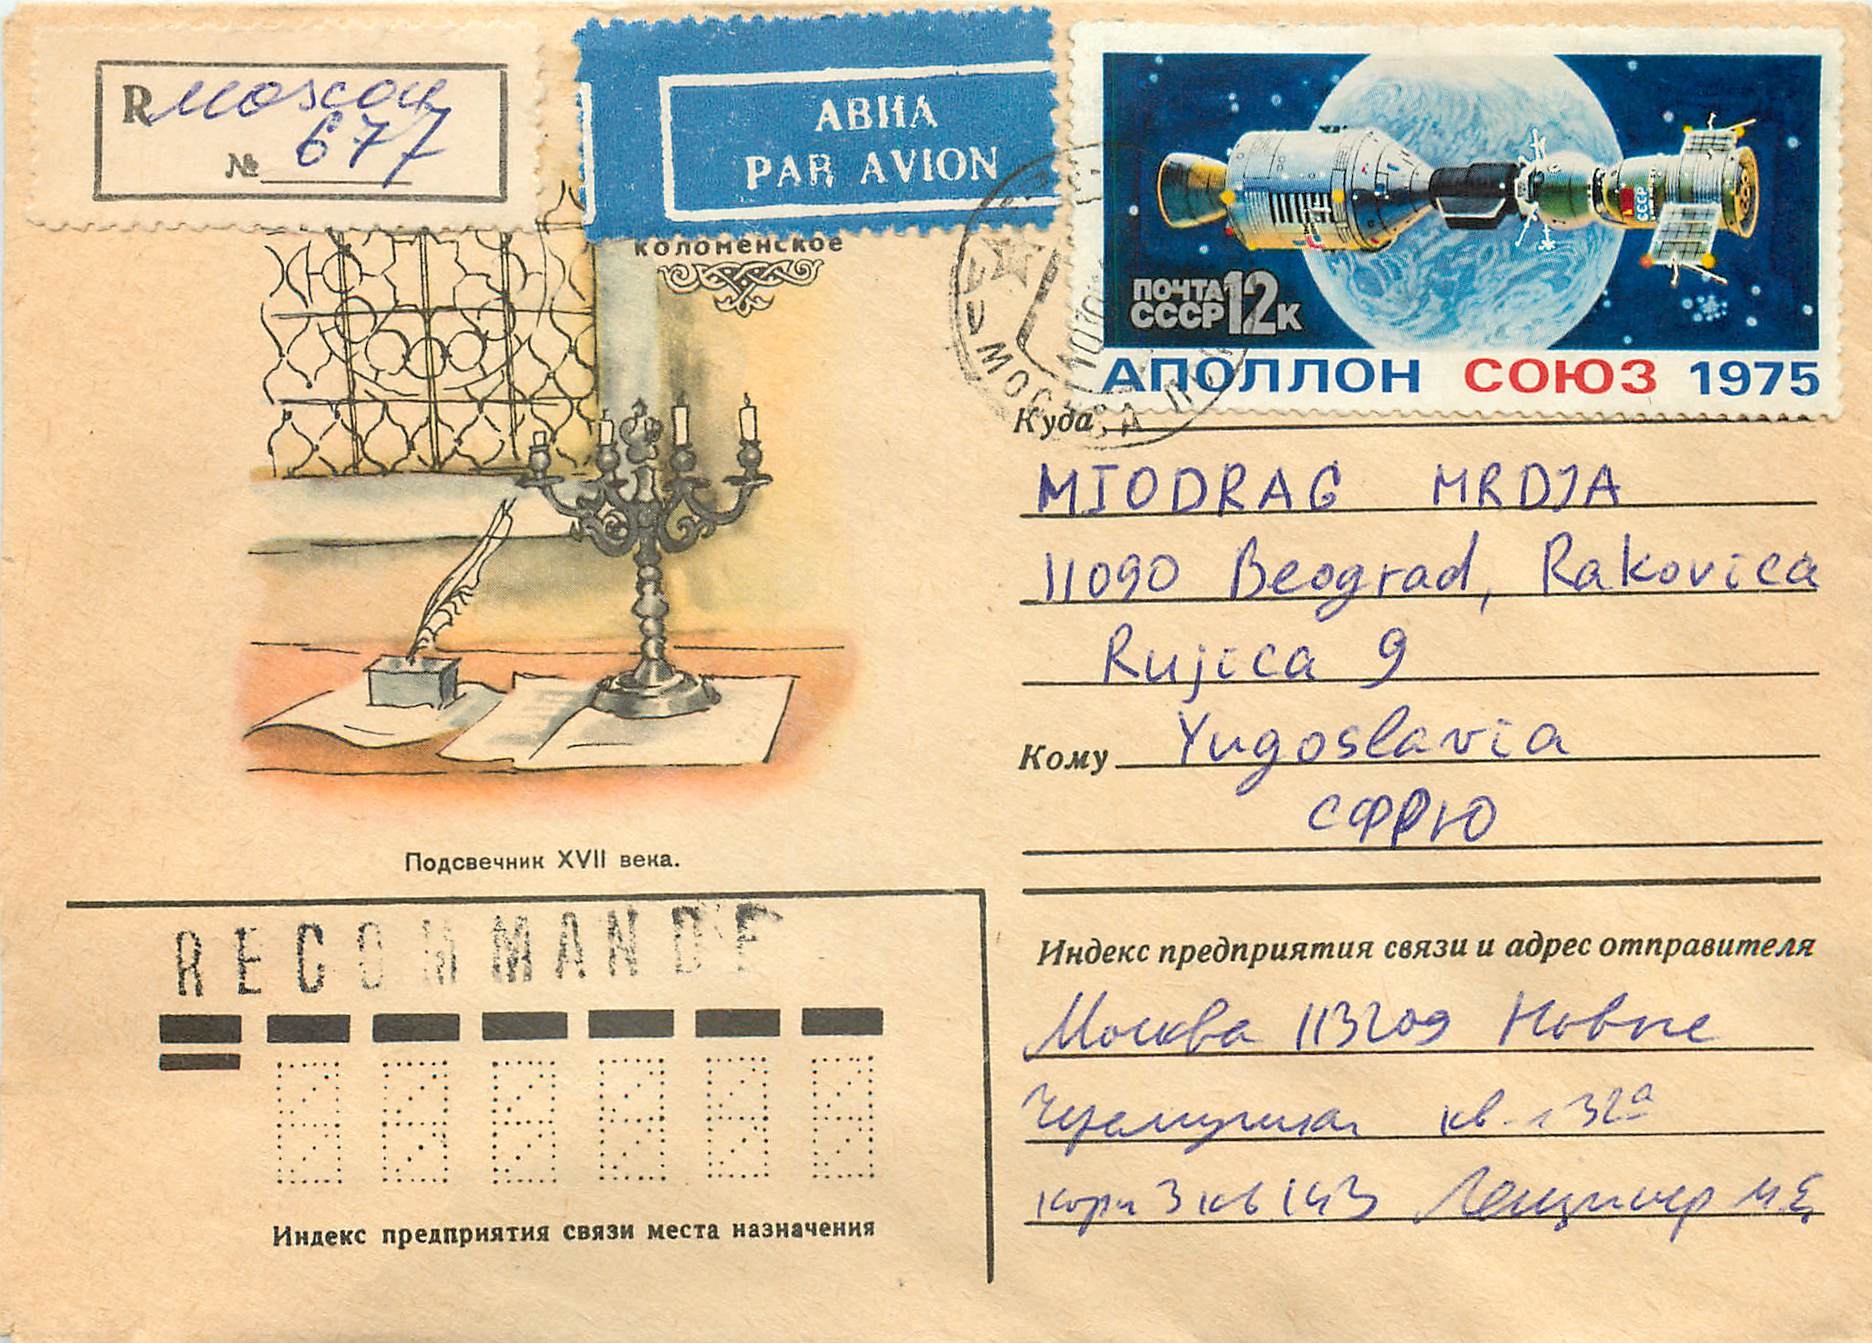 R Moscou
№ 677
АВИА
PAR AVION
КОЛОМЕНСКОЕ
СССР
ПОЧТА
СССР 12 К
АПОЛЛОН СОЮЗ 1975
МОСКВА
Куда
MIODRAG MRDJA
11090 Beograd, Rakovica
Rujica 9
Кому Yugoslavia
СФРЮ
Подсвечник XVII века.
RECOMMANDE
Индекс предприятия связи и адрес отправителя
Москва 113209 Новые
Черемушки кв-л 32а
корп 3 кв 143
Индекс предприятия связи места назначения